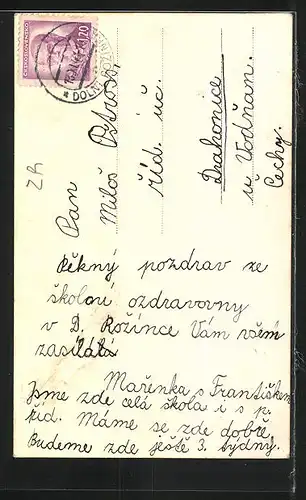 Pan
Miloš Ostrý,
říd. uč.
Drahonice
u Vodňan.
Čechy.
Pěkný pozdrav ze
školní ozdravovny
v D. Rožínce Vám všem
zasílá
Mařenka s Františkem
Jsme zde celá škola i s p.
říd. Máme se zde dobře,
Budeme zde ještě 3. týdny.
ZR